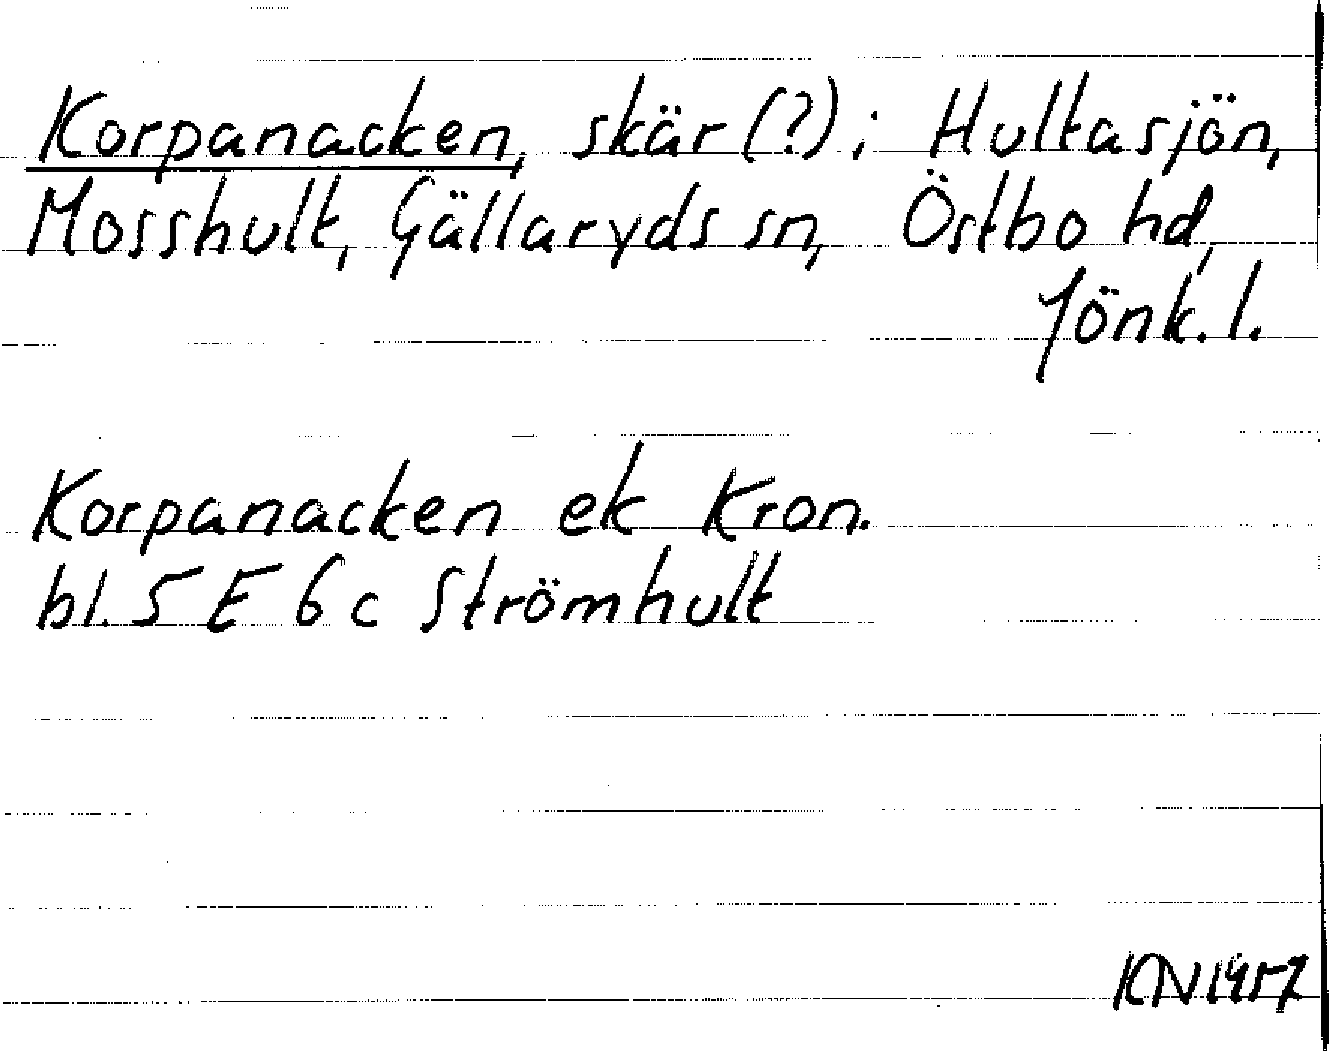 Korpanacken, skär (?) i Hultasjön,
Mosshult, Gällaryds sn, Östbo hd,
Jönk. l.
Korpanacken ek Kron.
bl. 5 E 6 c Strömhult
KN 1957